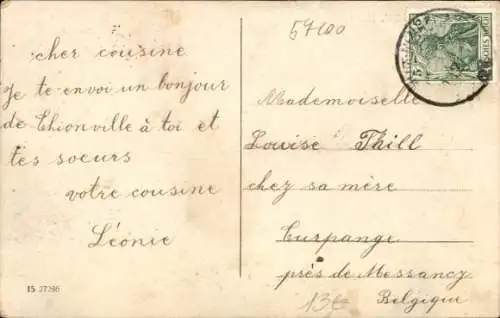 57100
cher cousine
Je te envoi un bonjour
de Thionville à toi et
tes soeurs
votre cousine
Léonie
15 27266
Mademoiselle
Louise Thill
chez sa mère
Turpange
près de Messancy
Belgique
13€